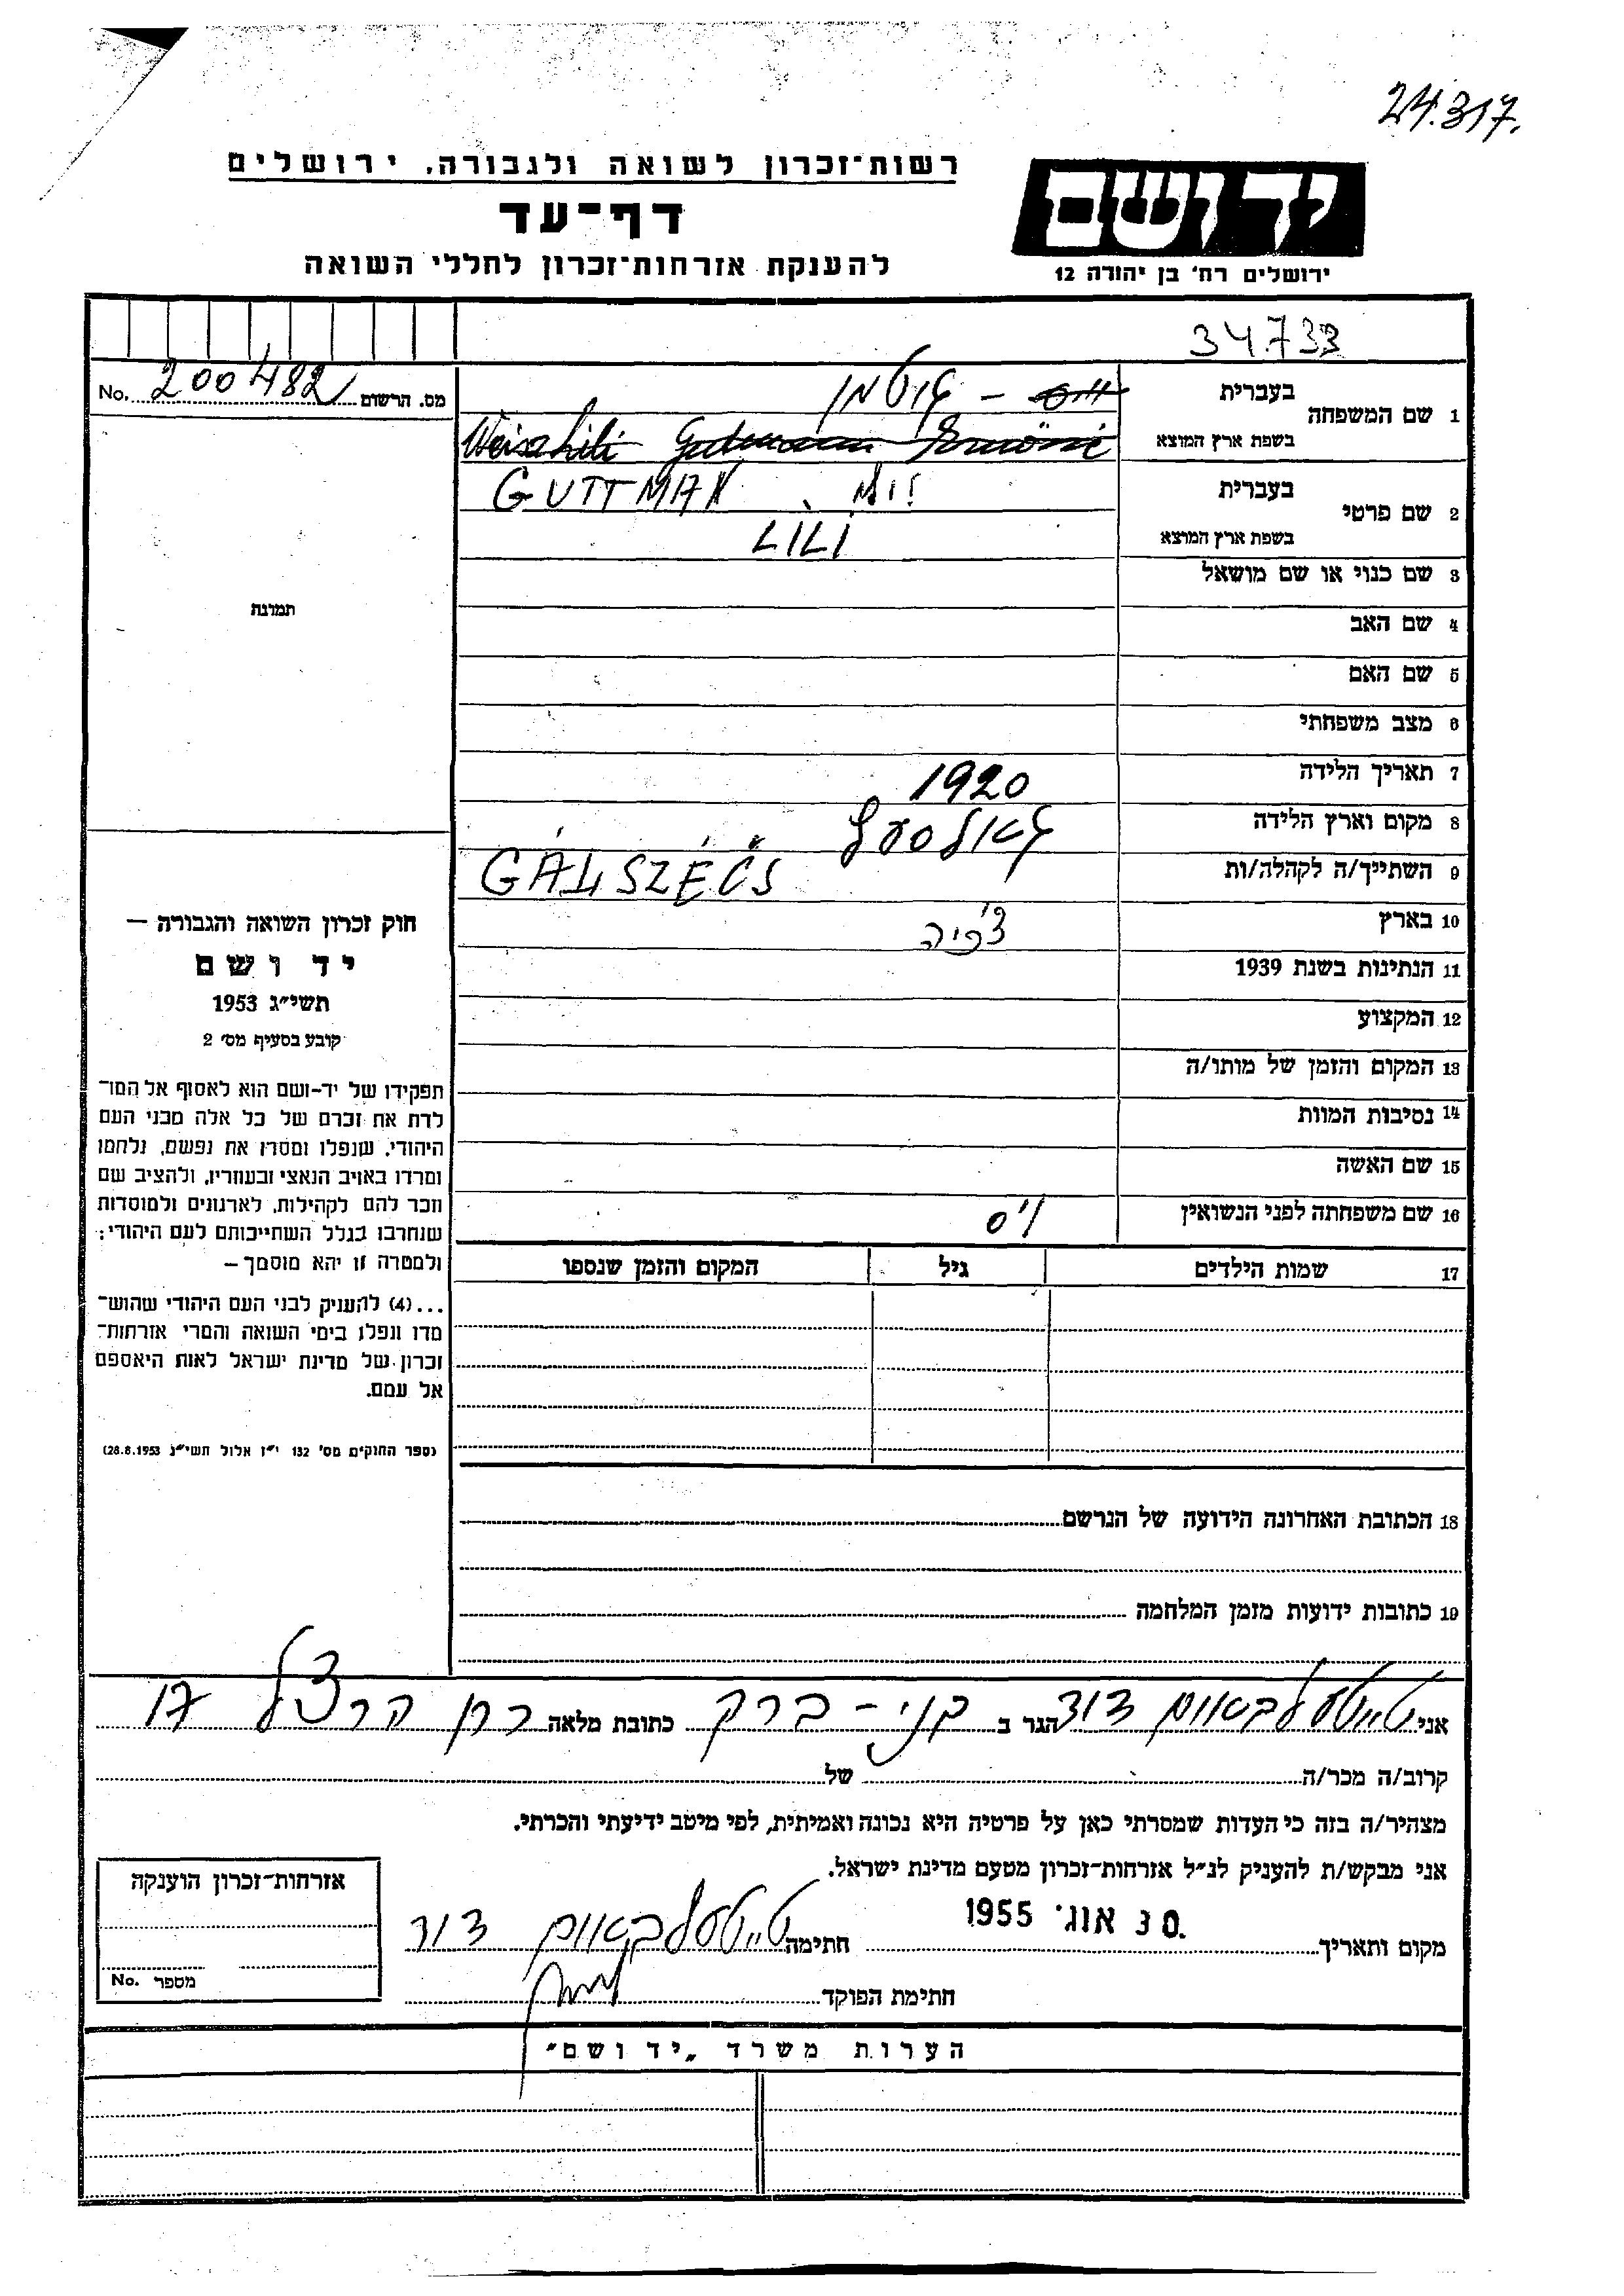 24.317.
רשות־זכרון לשואה ולגבורה, ירושלים
דף־עד
להענקת אזרחות־זכרון לחללי השואה
יד ושם
ירושלים רח' בן יהודה 12
34.733
מס. הרשום 200482 No.
1 שם המשפחה
בעברית ווייס - גוטמן
בשפת ארץ המוצא Weisz Lili Gutmann
GUTTMAN
2 שם פרטי
בעברית
בשפת ארץ המוצא LILI
3 שם כנוי או שם מושאל
4 שם האב
5 שם האם
6 מצב משפחתי
7 תאריך הלידה 1920
8 מקום וארץ הלידה
9 השתייך/ה לקהלה/ות GÁLSZÉCS
10 בארץ צ'כיה
11 הנתינות בשנת 1939
12 המקצוע
13 המקום והזמן של מותו/ה
14 נסיבות המוות
15 שם האשה
16 שם משפחתה לפני הנשואין וייס
17 שמות הילדים גיל המקום והזמן שנספו
18 הכתובת האחרונה הידועה של הנרשם
19 כתובות ידועות מזמן המלחמה
תמונה
חוק זכרון השואה והגבורה —
יד ושם
תשי"ג 1953
קובע בסעיף מס' 2
תפקידו של יד-ושם הוא לאסוף אל המו־
לדת את זכרם של כל אלה מבני העם
היהודי, שנפלו ומסרו את נפשם, נלחמו
ומרדו באויב הנאצי ובעוזריו, ולהציב שם
וזכר להם לקהילות, לארגונים ולמוסדות
שנחרבו בגלל השתייכותם לעם היהודי;
ולמטרה זו יהא מוסמך —
...(4) להעניק לבני העם היהודי שהוש־
מדו ונפלו בימי השואה והמרי אזרחות־
זכרון של מדינת ישראל לאות היאספם
אל עמם.
(ספר החוקים מס' 132 י"ז אלול תשי"ג 28.8.1953)
אני טייטלבאום דוד הגר ב בני - ברק כתובת מלאה רח הרצל 17
קרוב/ה מכר/ה של
מצהיר/ה בזה כי העדות שמסרתי כאן על פרטיה היא נכונה ואמיתית, לפי מיטב ידיעתי והכרתי.
אני מבקש/ת להעניק לנ"ל אזרחות-זכרון מטעם מדינת ישראל.
מקום ותאריך 30 אוג' 1955 חתימה טייטלבאום דוד
חתימת הפוקד
אזרחות-זכרון הוענקה
מספר No.
הערות משרד „יד ושם"